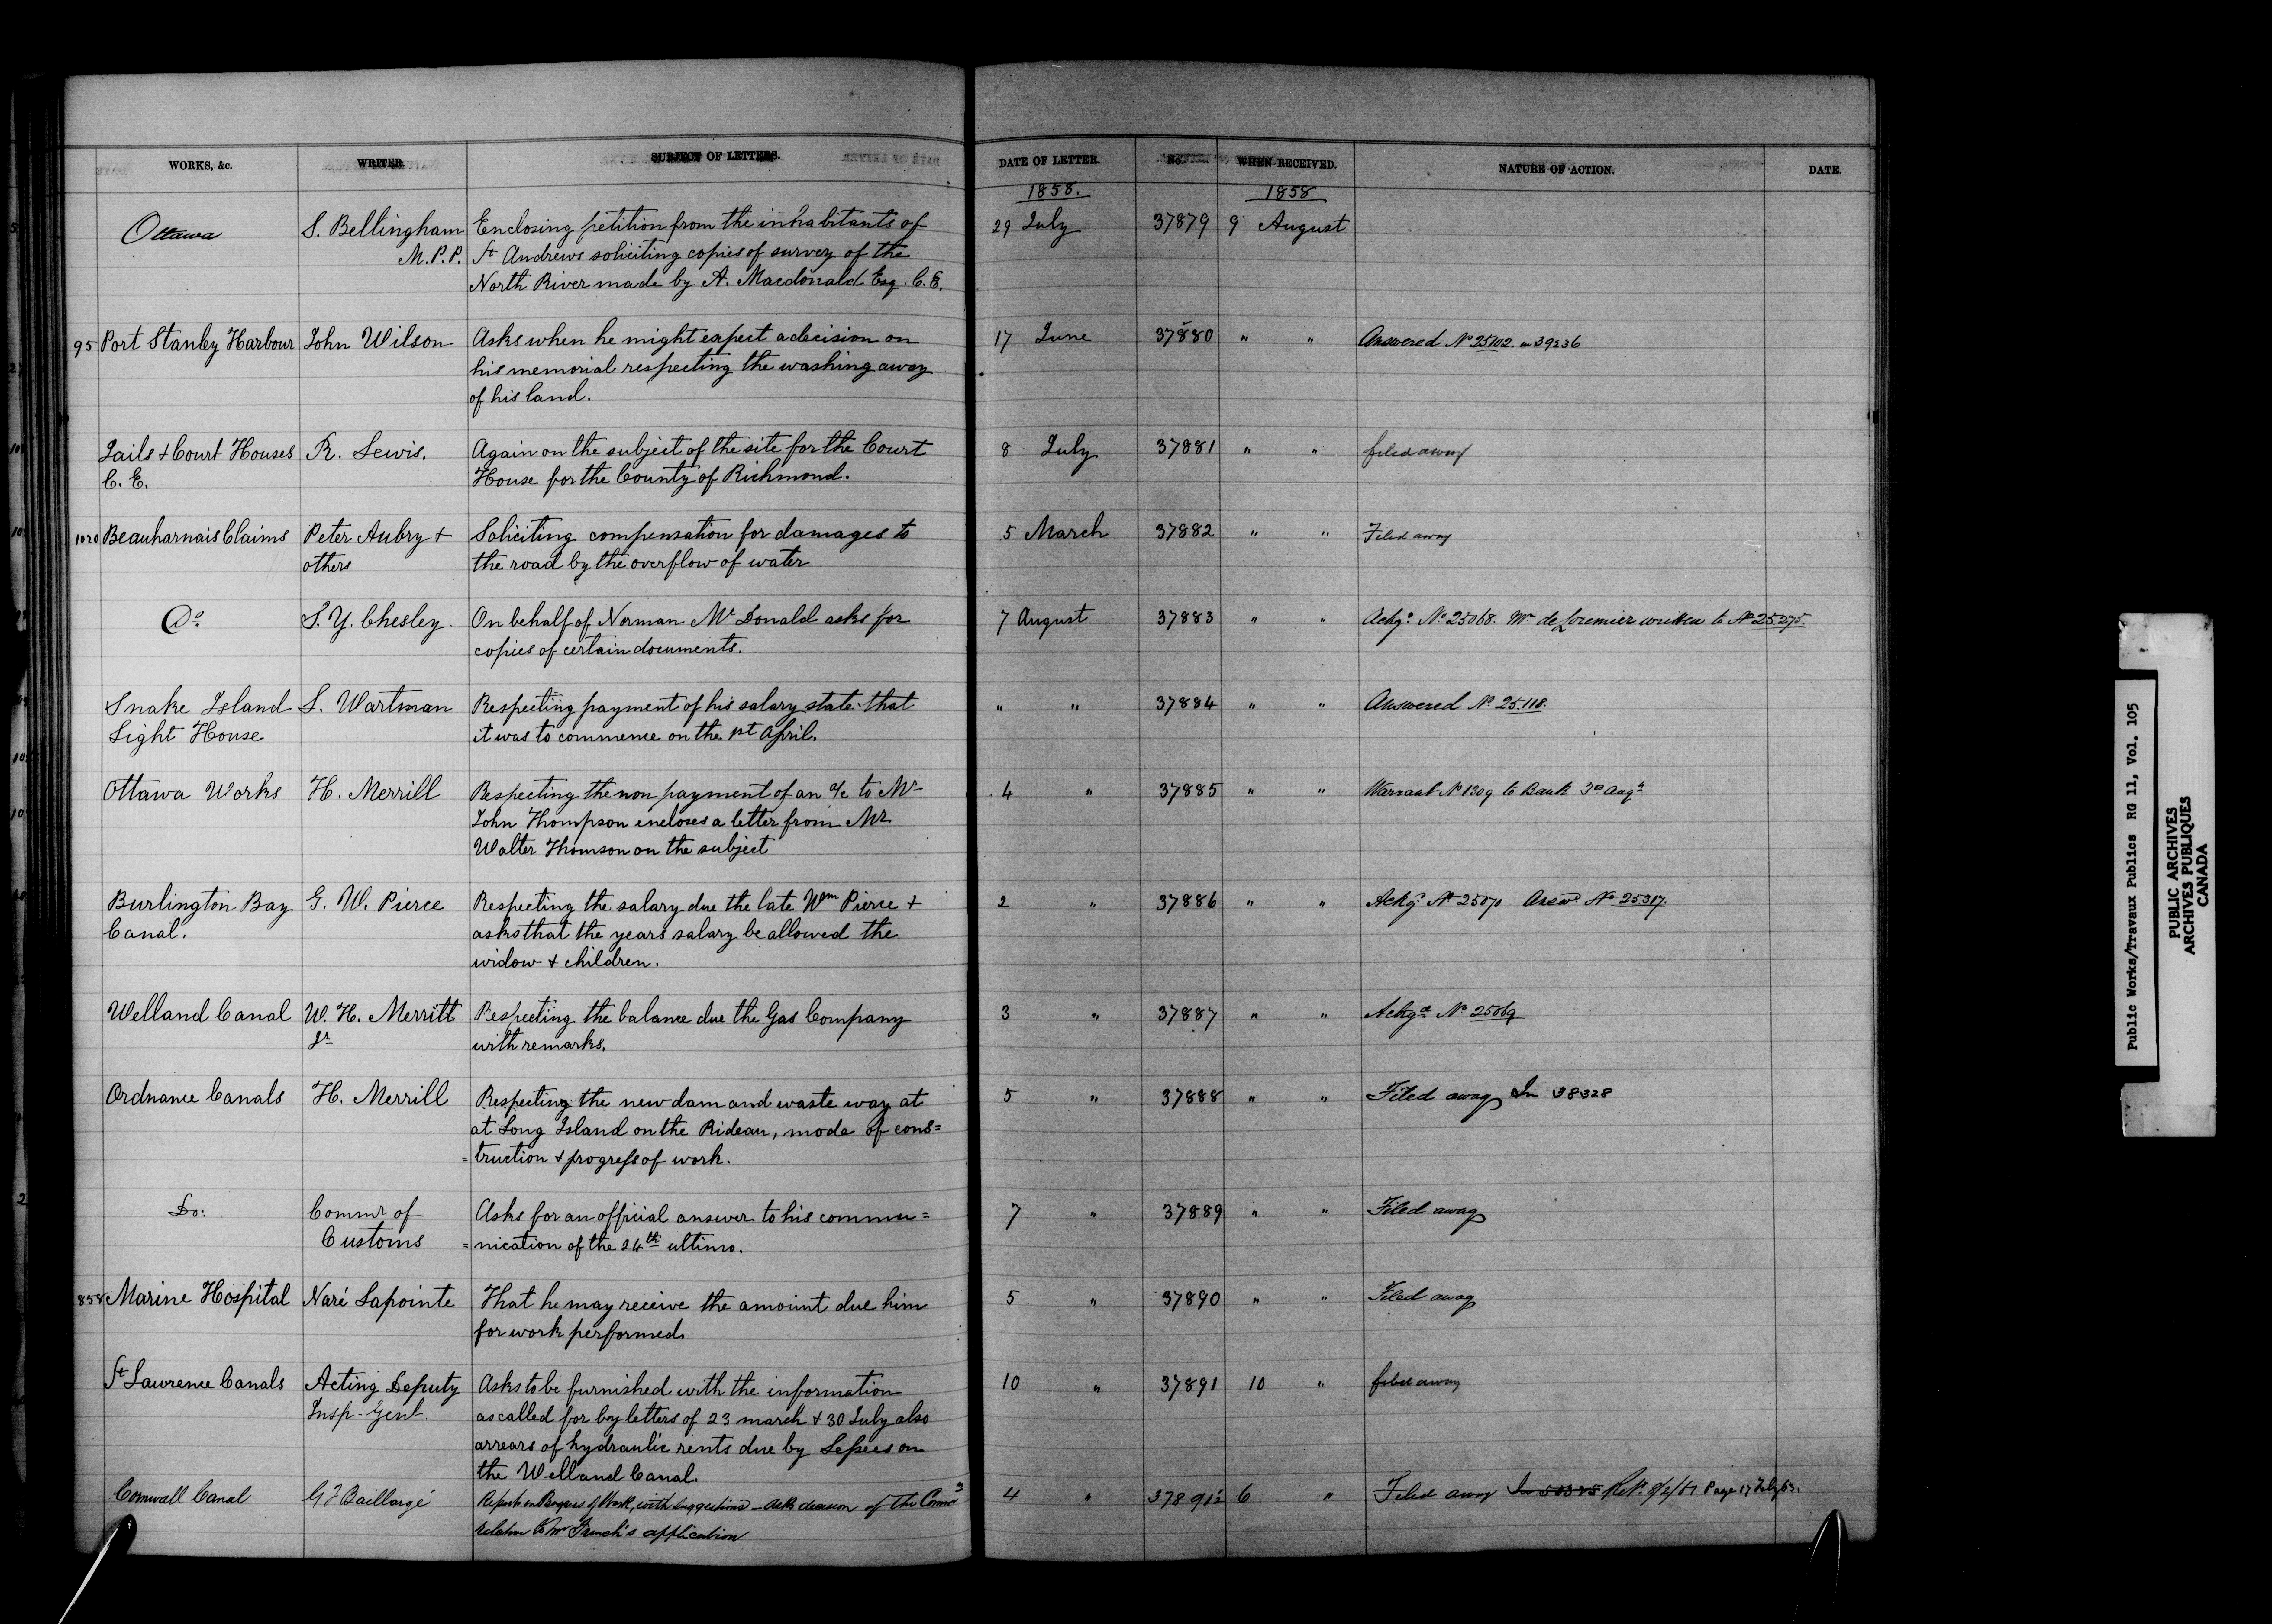 WORKS, &c. WRITER. SUBJECT OF LETTERS. DATE OF LETTER. No. WHEN RECEIVED. NATURE OF ACTION. DATE.
1858. 1858
Ottawa S. Bellingham Enclosing petition from the inhabitants of 29 July 37879 9 August
M.P.P. St Andrews soliciting copies of survey of the
North River made by A. Macdonald Esq. C.E.
95 Port Stanley Harbour John Wilson Asks when he might expect a decision on 17 June 37880 " " Answered No 25102. in 39236
his memorial respecting the washing away
of his land.
Jails & Court Houses R. Lewis. Again on the subject of the site for the Court 8 July 37881 " " filed away
C. E. House for the County of Richmond.
1020 Beauharnais Claims Peter Aubry & Soliciting compensation for damages to 5 March 37882 " " Filed away
others the road by the overflow of water
Do. S. Y. Chesley. On behalf of Norman McDonald asks for 7 August 37883 " " Ackgd. No 25068. Mr de Lorimier written to No 25.075.
copies of certain documents.
Snake Island S. Wartman Respecting payment of his salary state that " " 37884 " " Answered No. 25.118.
Light House it was to commence on the 1st April.
Ottawa Works H. Merrill Respecting the non payment of an a/c to Mr 4 " 37885 " " Warrant No 1309 to Bank 3d Augt
John Thompson encloses a letter from Mr
Walter Thomson on the subject
Burlington Bay G. W. Pierce Respecting the salary due the late Wm Pierce & 2 " 37886 " " Ackgd No 25070 Answd. No 25317.
Canal. asks that the years salary be allowed the
widow & children.
Welland Canal W. H. Merritt Respecting the balance due the Gas Company 3 " 37887 " " Ackgd No 25069
Jr with remarks.
Ordnance Canals H. Merrill Respecting the new dam and waste way at 5 " 37888 " " Filed away In 38328
at Long Island on the Rideau, mode of cons=
=truction & progress of work.
Do: Commr of Asks for an official answer to his commu= 7 " 37889 " " Filed away
Customs =nication of the 24th ultimo.
858 Marine Hospital Naré Lapointe That he may receive the amount due him 5 " 37890 " " Filed away
for work performed.
St Lawrence Canals Acting Deputy Asks to be furnished with the information 10 " 37891 10 " filed away
Insp- Genl. as called for by letters of 23 march & 30 July also
arrears of hydraulic rents due by Lessees on
the Welland Canal.
Cornwall Canal G F Baillargé Reports on Progress of Work, with suggestions - asks decision of the Commrs 4 " 37891½ 6 " Filed away In 50325
relative to Mr French's application
Public Works/Travaux Publics RG 11, Vol. 105
PUBLIC ARCHIVES
ARCHIVES PUBLIQUES
CANADA